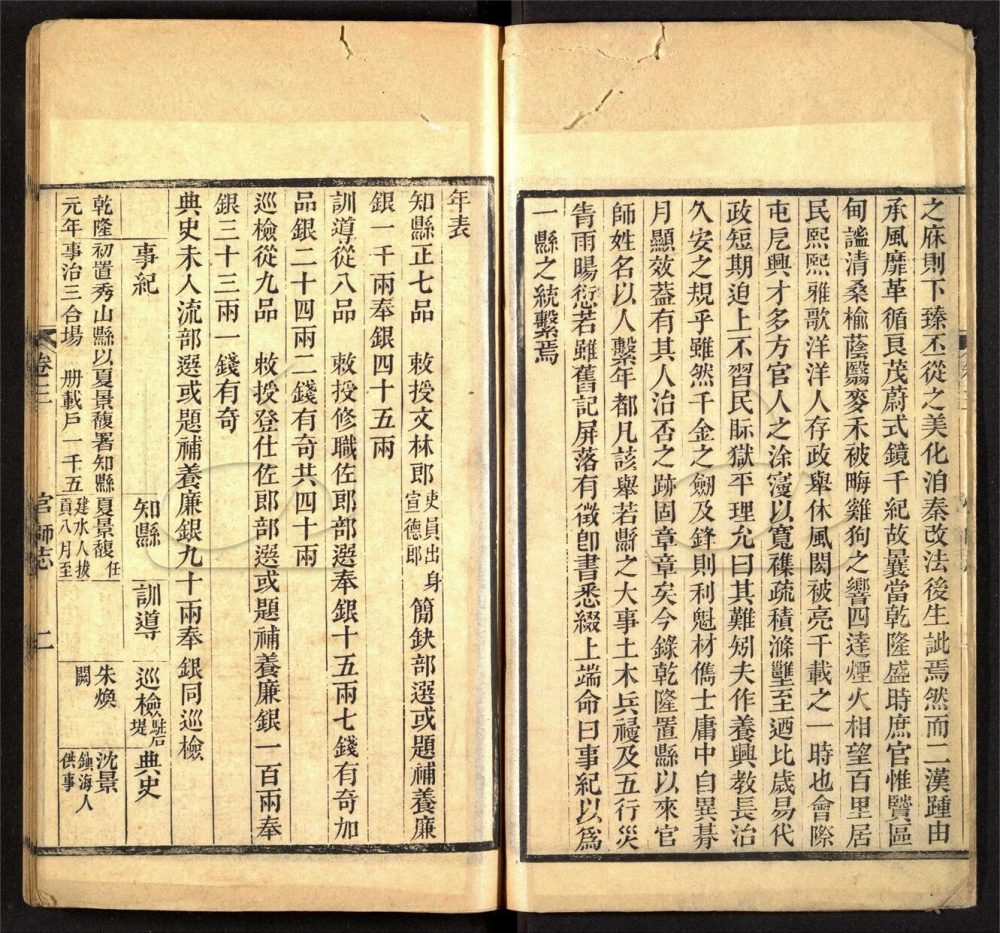 之庥則下臻丕從之美化洎秦改法後生訿焉然而二漢踵由
承風靡革循艮茂蔚式鏡千紀故曩當乾隆盛時庶官惟賢區
甸謐清桑榆蔭翳麥禾被畮雞狗之響四達煙火相望百里居
民熙熙雅歌洋洋人存政舉休風閎被亮千載之一時也會際
屯戹興才多方官人之涂寖以寬襍疏積滌壐至迺比歲易代
政短期迫上不習民眎獄平理允曰其難矧夫作養興教長治
久安之規乎雖然千金之劒及鋒則利魁材儁士庸中自異朞
月顯效蓋有其人治否之跡固章章矣今錄乾隆置縣以來官
師姓名以人繫年都凡該舉若縣之大事土木兵祲及五行災
眚雨暘愆若雖舊記屏落有徵卽書悉綴上端命曰事紀以爲
一縣之統繫焉
年表
知縣正七品 敕授文林郎吏員出身宣德郎簡缺部選或題補養廉
銀一千兩奉銀四十五兩
訓導從八品 敕授修職佐郎部選奉銀十五兩七錢有奇加
品銀二十四兩二錢有奇共四十兩
巡檢從九品 敕授登仕佐郎部選或題補養廉銀一百兩奉
銀三十三兩一錢有奇
典史未入流部選或題補養廉銀九十兩奉銀同巡檢
事紀 知縣 訓導 巡檢駐石堤 典史
乾隆元年
初置秀山縣以夏景馥署知縣
事治三合場 册載戶一千五
夏景馥任
建水人拔
貢八月至
朱煥
闕
沈景
鎮海人
供事
卷三 官師志 二